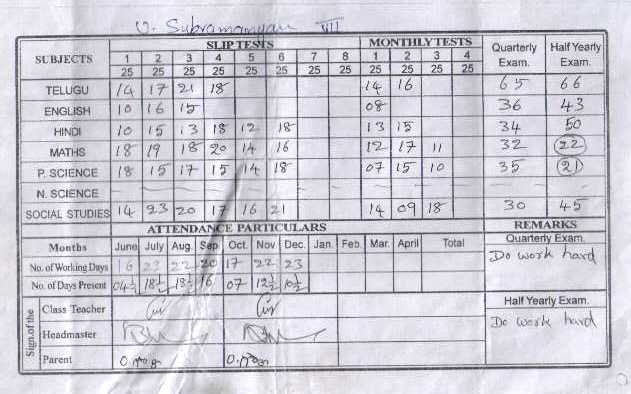 V. Subramanyam VII
SUBJECTS SLIP TESTS MONTHLY TESTS Quarterly Exam. Half Yearly Exam.
1 2 3 4 5 6 7 8 1 2 3 4
25 25 25 25 25 25 25 25 25 25 25 25
TELUGU 14 17 21 18 14 16 65 66
ENGLISH 10 16 15 08 36 43
HINDI 10 15 13 18 12 18 13 15 34 50
MATHS 18 19 18 20 14 16 12 17 11 32 22
P. SCIENCE 18 15 17 15 14 18 07 15 10 35 21
N. SCIENCE
SOCIAL STUDIES 14 23 20 17 16 21 14 09 18 30 45
ATTENDANCE PARTICULARS REMARKS
Months June July Aug. Sep. Oct. Nov. Dec. Jan. Feb. Mar. April Total Quarterly Exam.
No. of Working Days 16 22 20 17 22 23 Do work hard
No. of Days Present 04½ 18½ 18½ 16 07 12½ 10½
Sign.of the Class Teacher Half Yearly Exam.
Headmaster Do work hard
Parent